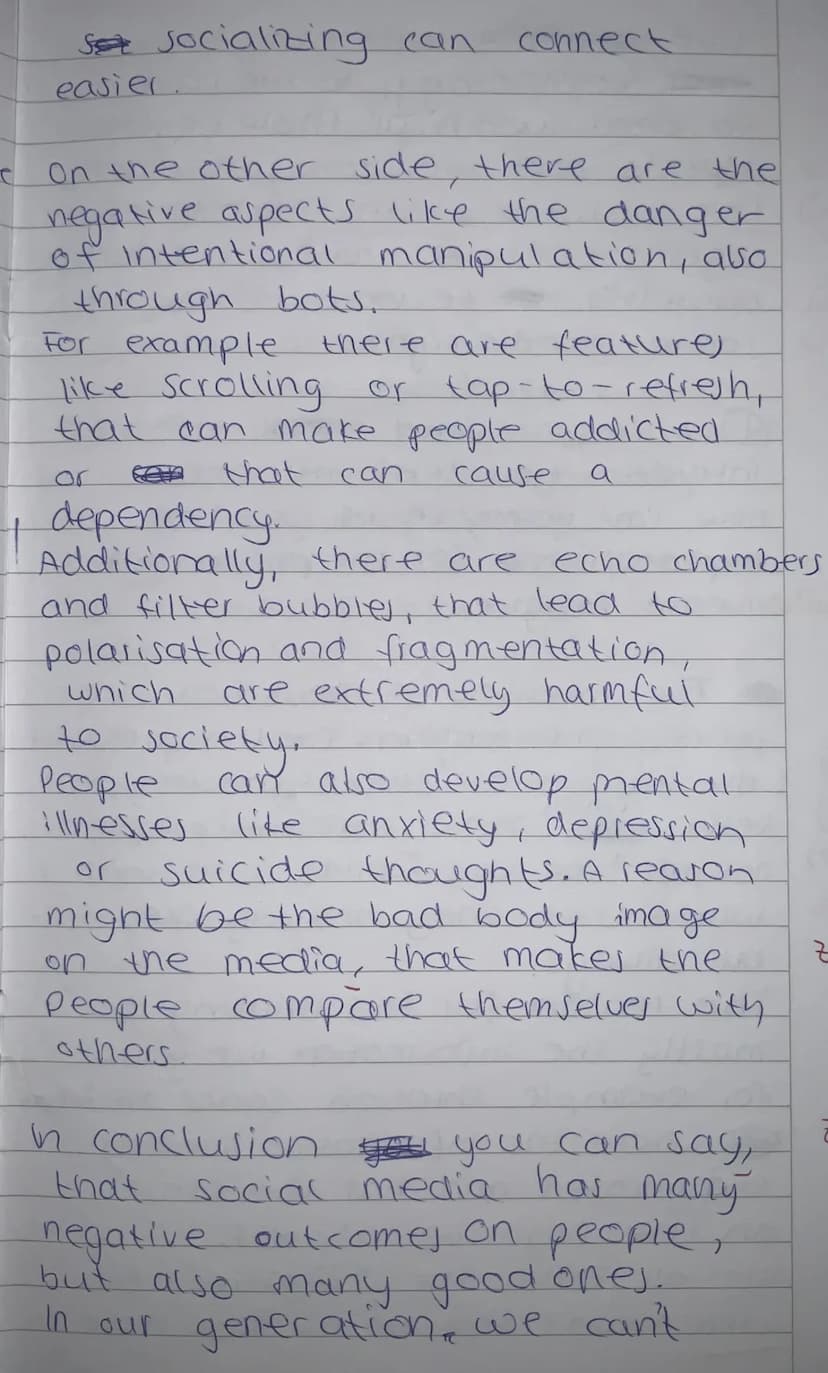 socializing can connect
easier.
On the other side, there are the
negative aspects like the danger
of intentional manipulation, also
through bots.
For example there are features
like scrolling or tap-to-refresh,
that can make people addicted
or that can cause a
dependency.
Additionally, there are echo chambers
and filter bubbles, that lead to
polarisation and fragmentation,
which are extremely harmful
to society.
People can also develop mental
illnesses like anxiety, depression
or suicide thoughts. A reason
might be the bad body image
on the media, that makes the
people compare themselves with
others.
In conclusion you can say,
that social media has many
negative outcomes on people,
but also many good ones.
In our generation, we can't